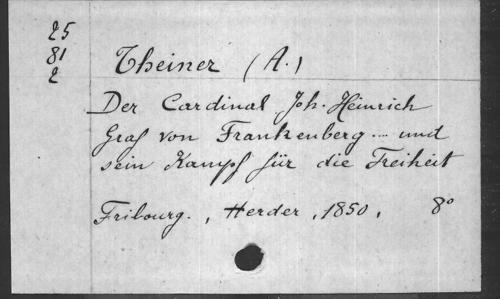 25
81
2
Theiner (A.)
Der Cardinal Joh. Heinrich
Graf von Frankenberg .... und
sein Kampf für die Freiheit
Fribourg. , Herder , 1850 , 8°